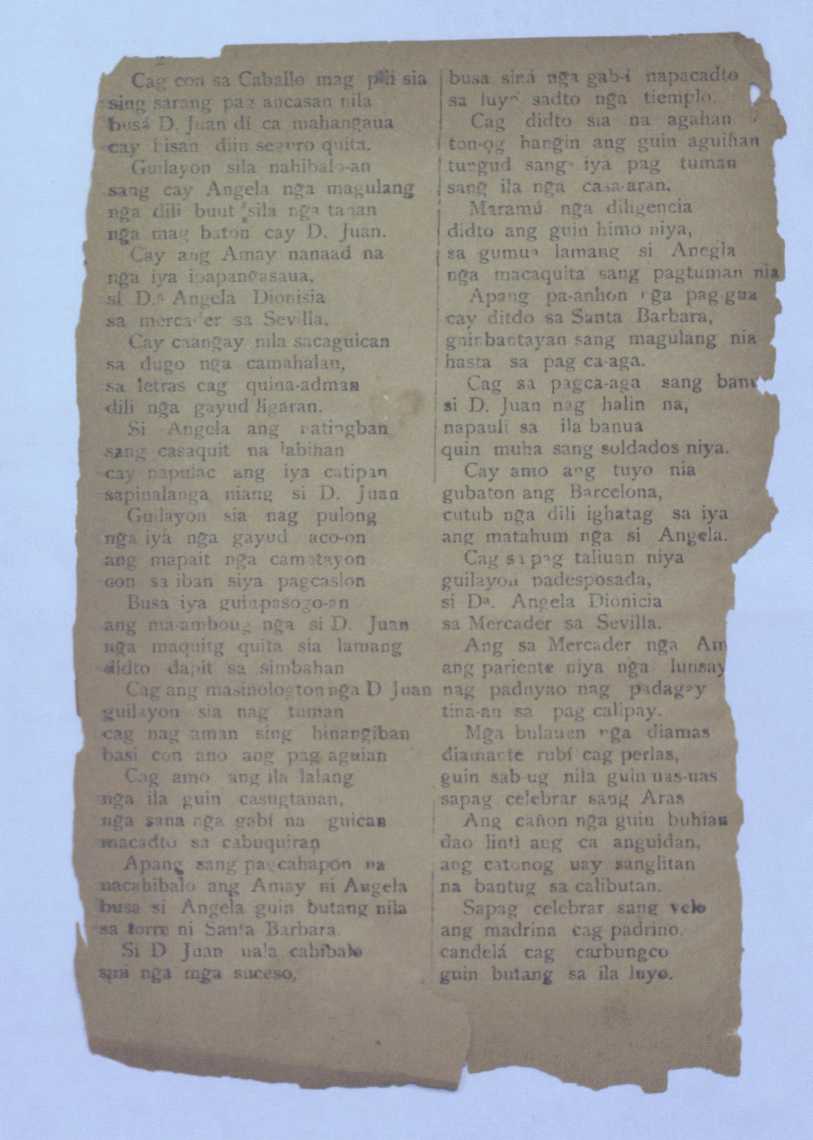 Cag con sa Caballo mag pili sia
sing sarang pag ancasan nila
busá D. Juan di ca mahangaua
cay bisan diin seguro quita.
Guilayon sila nahibalo-an
sang cay Angela nga magulang
nga dili buut sila nga tanan
nga mag baton cay D. Juan.
Cay ang Amay nanaad na
nga iya ipapangasaua,
si D.ª Angela Dionisia
sa mercader sa Sevilla.
Cay caangay nila sacaguican
sa dugo nga camahalan,
sa letras cag quina-adman
dili nga gayud ligaran.
Si Angela ang natingban
sang casaquit na labihan
cay napulac ang iya catipan
sapinalanga niang si D. Juan
Guilayon sia nag pulong
nga iya nga gayud aco-on
ang mapait nga camatayon
con sa iban siya pagcaslon
Busa iya guinpasogo-an
ang ma-amboug nga si D. Juan
nga maquitg quita sia lamang
didto dapit sa simbahan
Cag ang masinologton nga D Juan
guilayon sia nag tuman
cag nag aman sing hinangiban
basi con ano ang pag-aguian
Cag amo ang ila lalang
nga ila guin casugtanan,
nga sana nga gabí na guican
macadto sa cabuquiran
Apang sang pagcahapon na
nacahibalo ang Amay ni Angela
busa si Angela guin butang nila
sa torre ni Santa Barbara.
Si D Juan uala cahibalo
sini nga mga suceso,
busa siná nga gab-i napacadto
sa luyo sadto nga tiemplo.
Cag didto sia na agahan
ton-og hangin ang guin aguihan
tungud sang iya pag tuman
sang ila nga casa-aran.
Maramú nga diligencia
didto ang guin himo niya,
sa gumua lamang si Anegla
nga macaquita sang pagtuman nia
Apang pa-anhon nga pag-gua
cay ditdo sa Santa Barbara,
guinbantayan sang magulang nia
hasta sa pag ca-aga.
Cag sa pagca-aga sang
si D. Juan nag halin na,
napauli sa ila banua
quin muha sang soldados niya.
Cay amo ang tuyo nia
gubaton ang Barcelona,
cutub nga dili ighatag sa iya
ang matahum nga si Angela.
Cag sa pag taliuan niya
guilayon padesposada,
si Dª. Angela Dionicia
sa Mercader sa Sevilla.
Ang sa Mercader nga Am
ang pariente niya nga lunsay
nag padnyao nag padagay
tina-an sa pag calipay.
Mga bulauen nga diamas
diamante rubí cag perlas,
guin sab-ug nila guin uas-uas
sapag celebrar sang Aras
Ang cañon nga guin buhian
dao linti ang ca anguidan,
ang catonog uay sanglitan
na bantug sa calibutan.
Sapag celebrar sang velo
ang madrina cag padrino.
candelá cag carbungco
guin butang sa ila luyo.